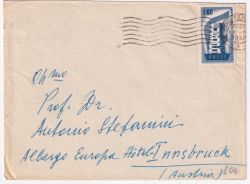 Ch.mo
Prof. Dr.
Antonio Stefanini
Albergo Europa Hôtel-Innsbruck
(Austria)